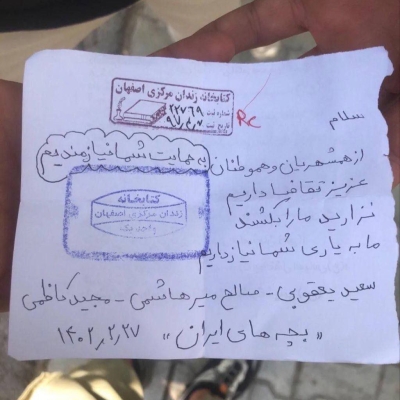 کتابخانه زندان مرکزی اصفهان
شماره ثبت ۲۲۷۶۹
تاریخ ثبت
سلام
از همشهریان و هموطنان به حمایت شما نیازمندیم
عزیز تقاضا داریم
نزارید ما را بکشند
ما به یاری شما نیاز داریم
کتابخانه
زندان مرکزی اصفهان
سعید یعقوبی - صالح میرهاشمی - مجید کاظمی
«بچه های ایران» ۱۴۰۲٫۲٫۲۷